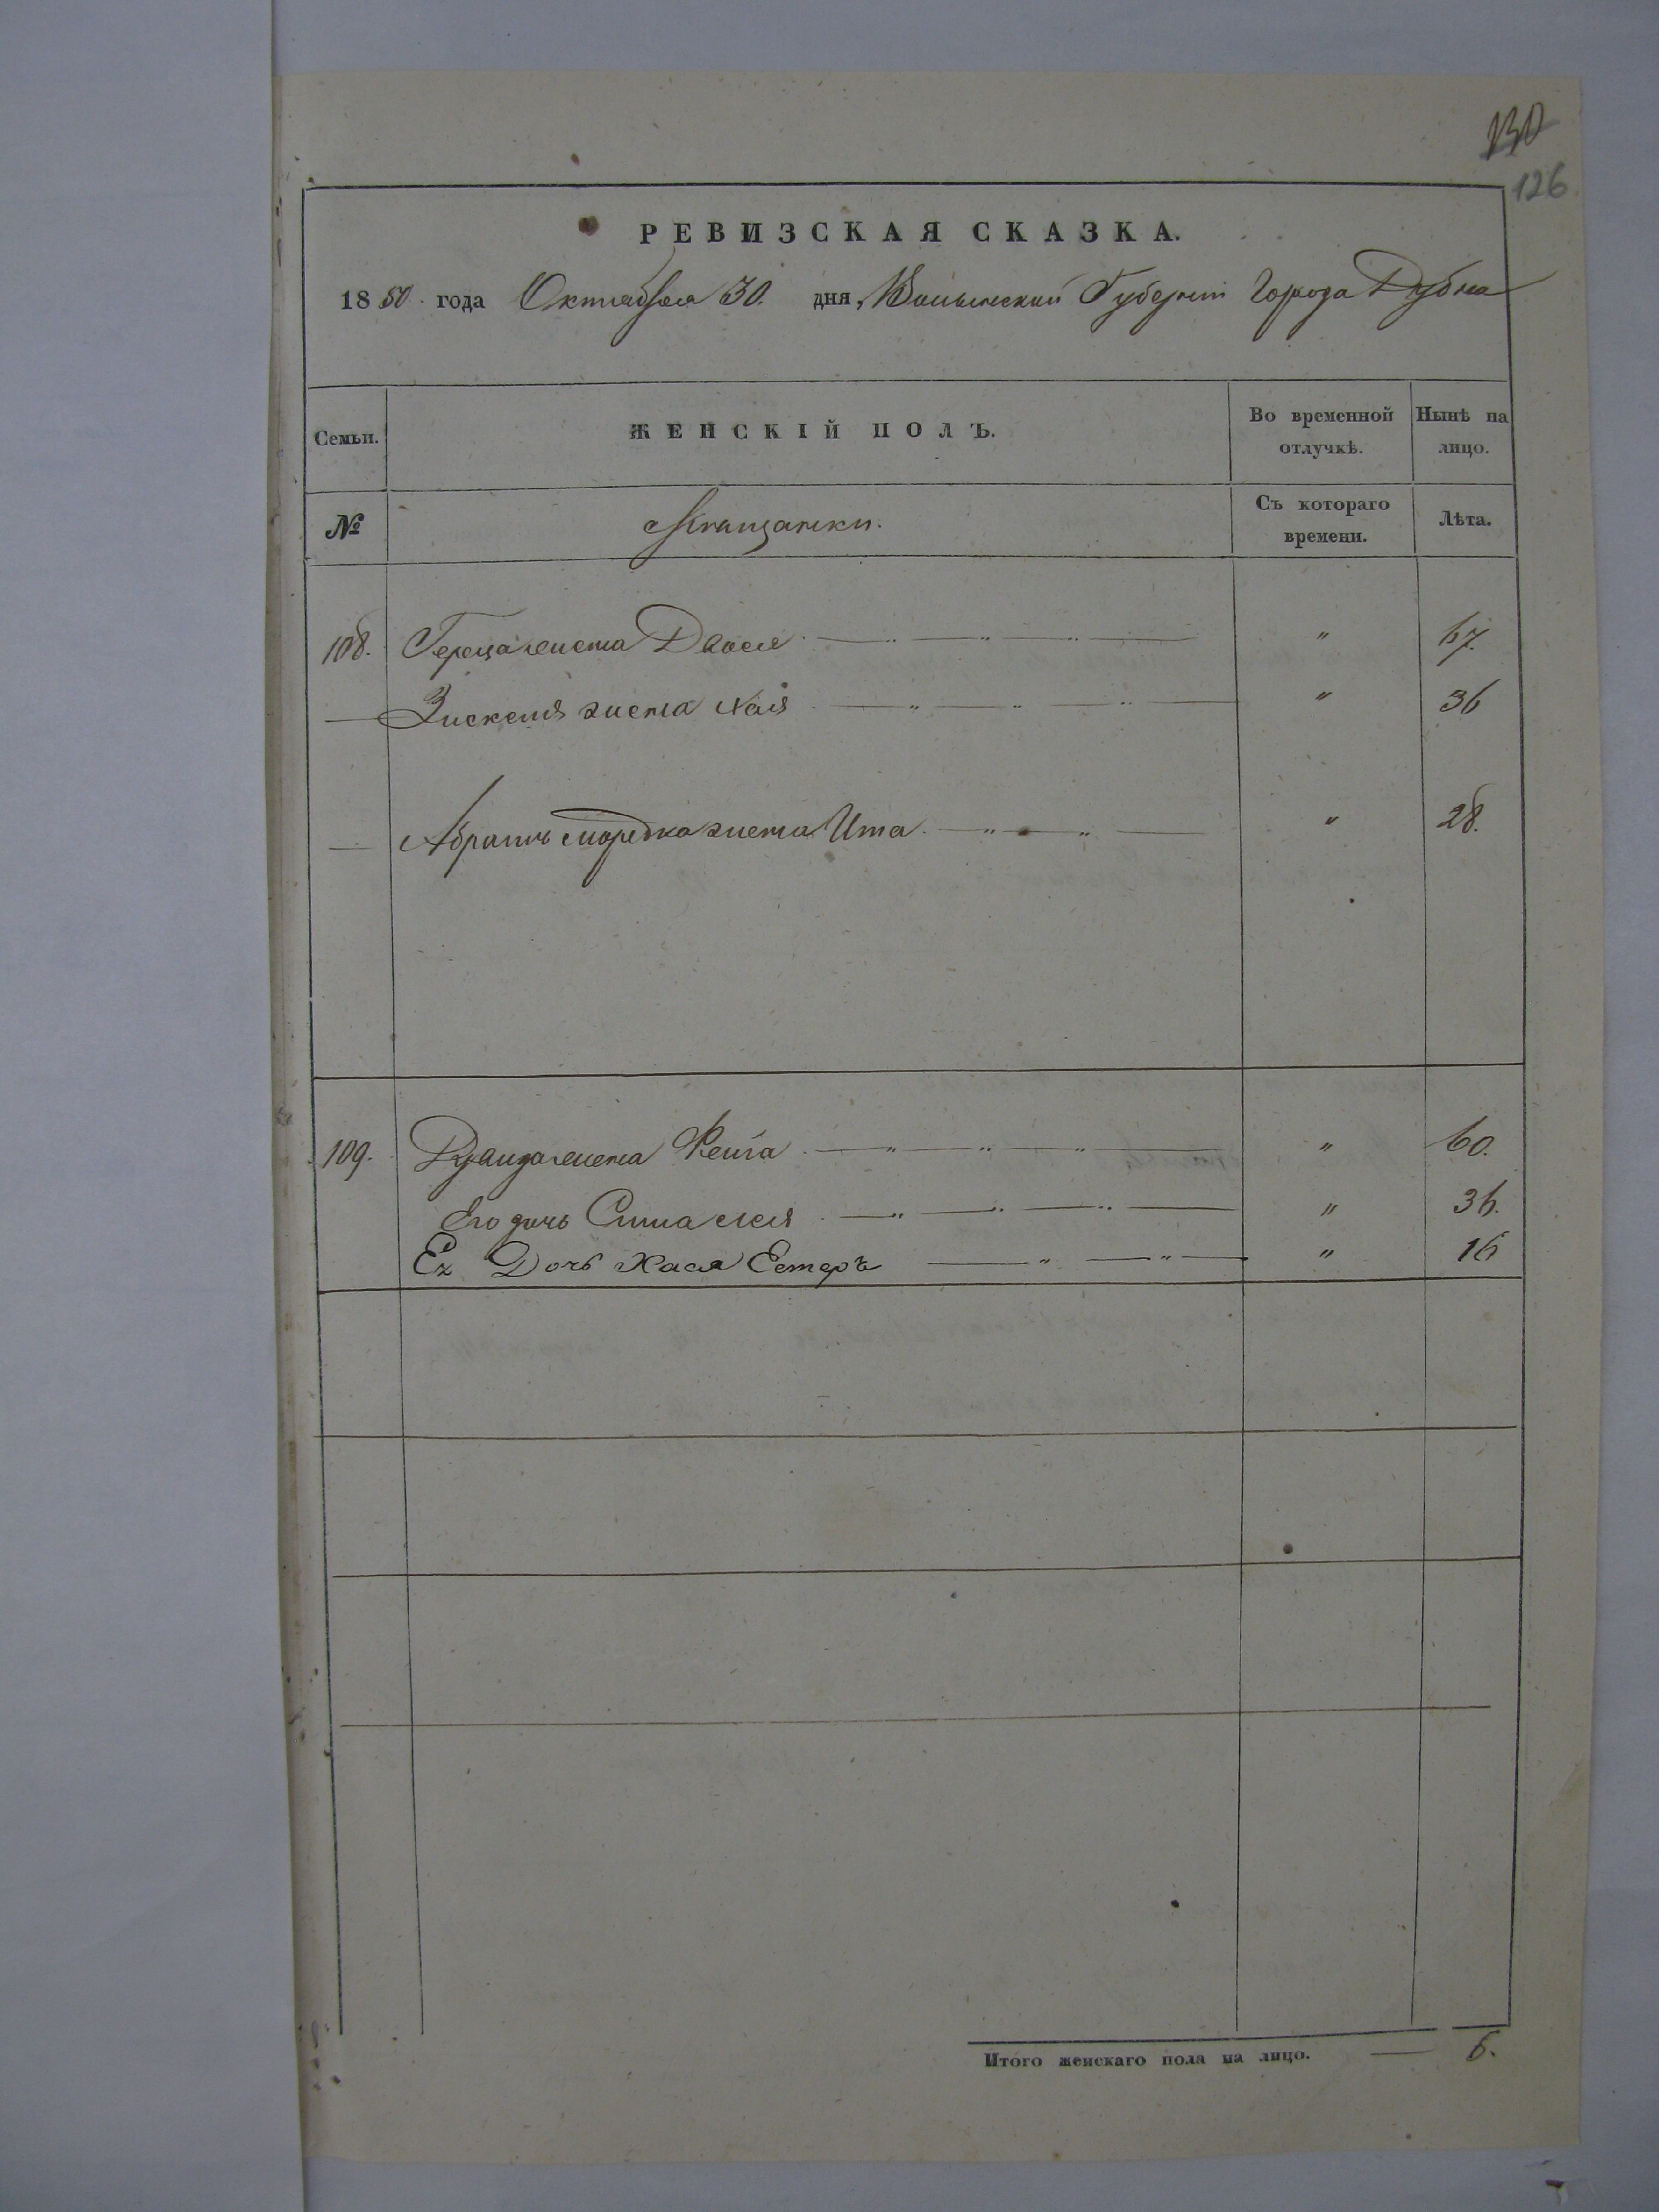 130
126
РЕВИЗСКАЯ СКАЗКА.
1850 года Октября 30. дня, Волынской Губерніи Города Дубна
Семьи. ЖЕНСКІЙ ПОЛЪ. Во временной отлучкѣ. Нынѣ на лицо.
№ Мѣщанки. Съ котораго времени. Лѣта.
108. Герца жена Двося " 67.
Зискеля жена Хая " 36
Абрамъ Мордка жена Ита " 28.
109. жена Фейга " 60.
Его дочь " 36.
Ея Дочь Хася Естеръ " 16
Итого женскаго пола на лицо. 6.